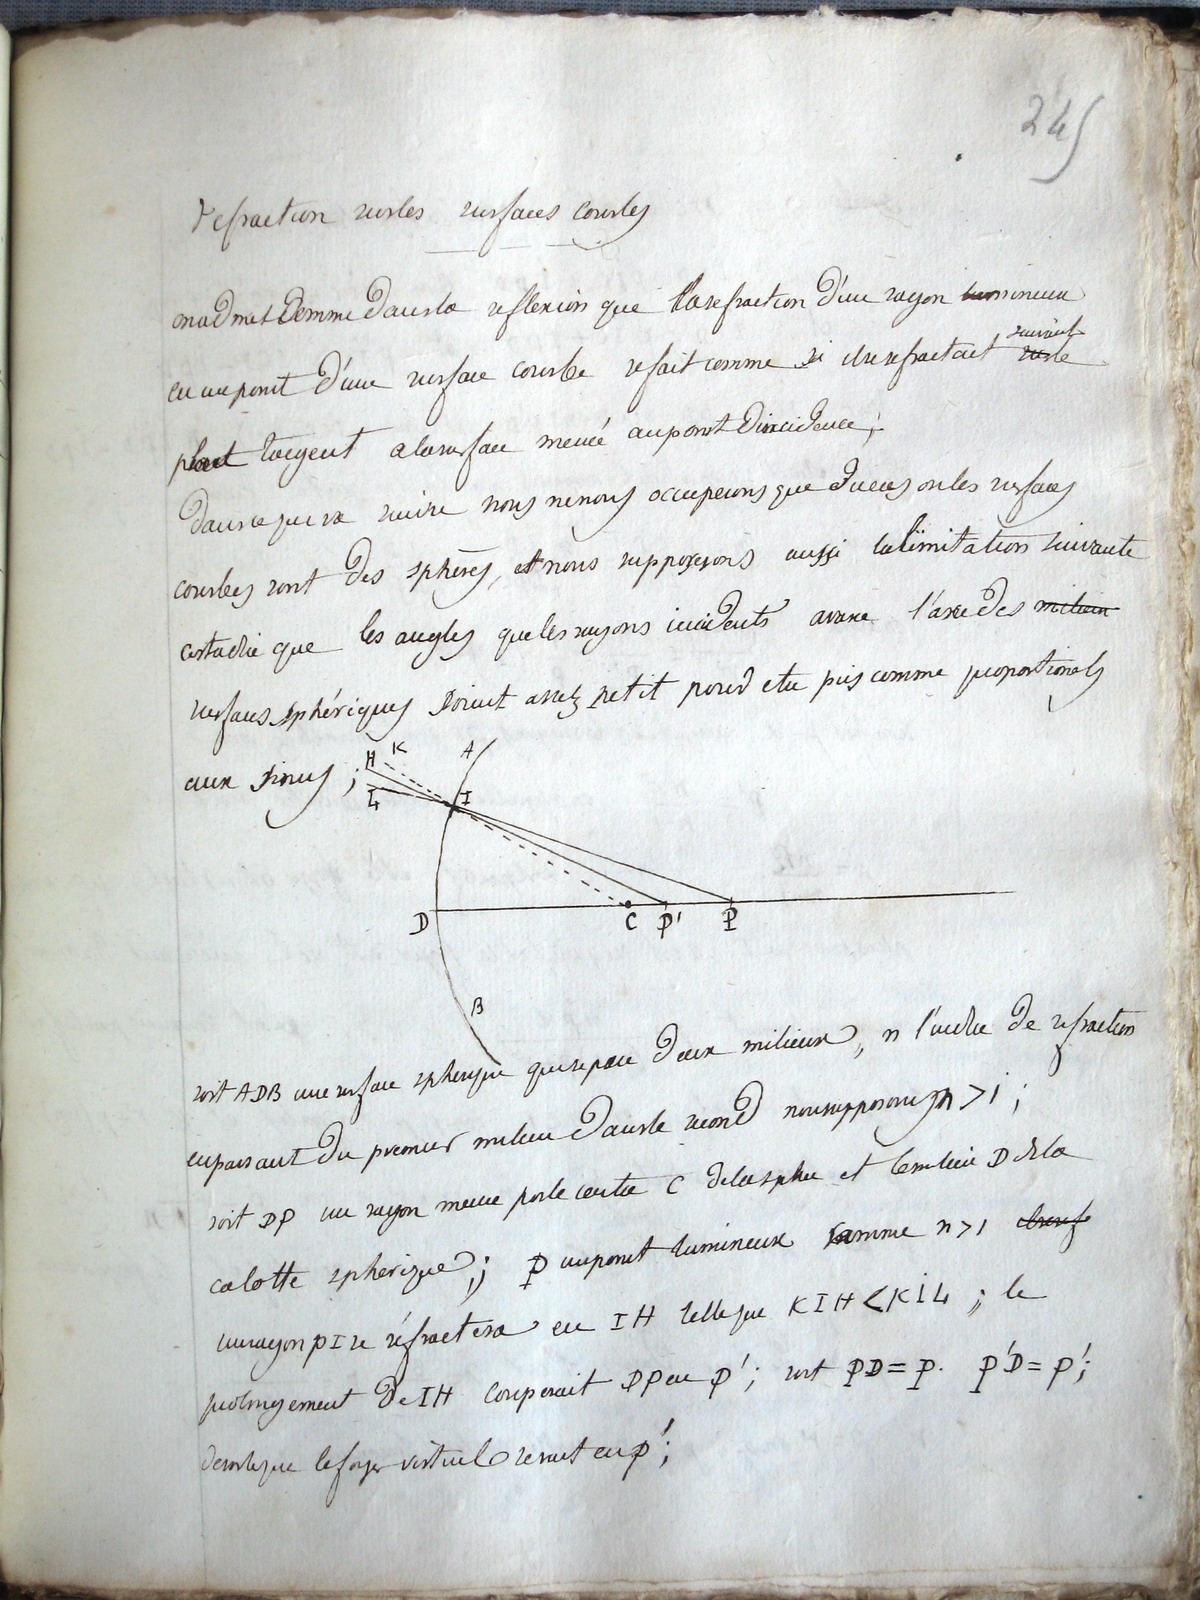 245
refraction sur les surfaces courbes
on admet comme dans la reflexion que la refraction d'un rayon lumineux
en un point d'une surface courbe se fait comme si il se refractait suivant sur le
plan tangent a la surface mené au point d'incidence;
dans ce qui va suivre nous ne nous occuperons que du cas ou les surfaces
courbes sont des sphères, et nous supposerons aussi la limitation suivante
c'est a dire que les angles que les rayons incidents avec l'axe des milieu
surfaces sphériques soient assez petit pour etre pris comme proportionels
aux sinus ;
H K A
L I
D C P' P
B
soit ADB une surface spherique qui separe deux milieux, n l'indice de refraction
en passant du premier milieu dans le second nous supposons n > 1 ;
soit DP un rayon mené par le centre C de la sphere et le milieu D de la
calotte spherique; P un point lumineux comme n > 1
un rayon PI se réfractera en IH telle que KIH < KIL ; le
prolongement de IH couperait DP en P' ; soit PD = p. P'D = p' ;
de sorte que le foyer virtuel serait en P' ;